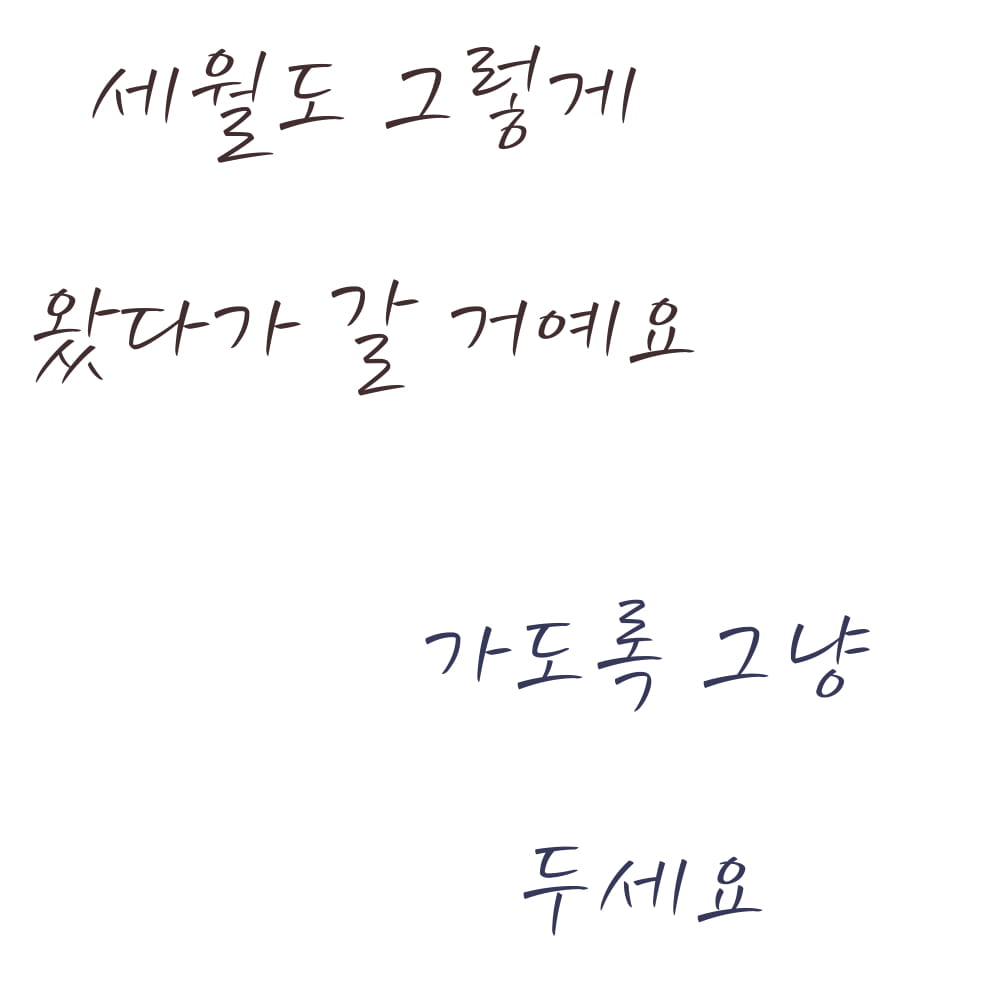 세월도 그렇게
왔다가 갈 거예요
가도록 그냥
두세요